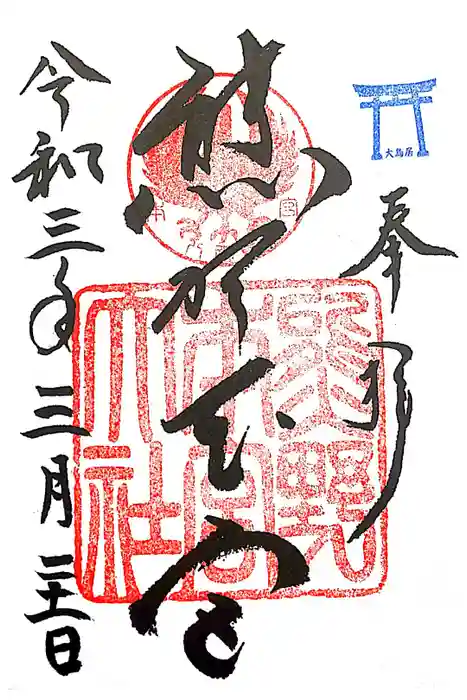 大鳥居
奉拝
熊野本宮
令和三年三月二十一日
熊野
本宮
大社